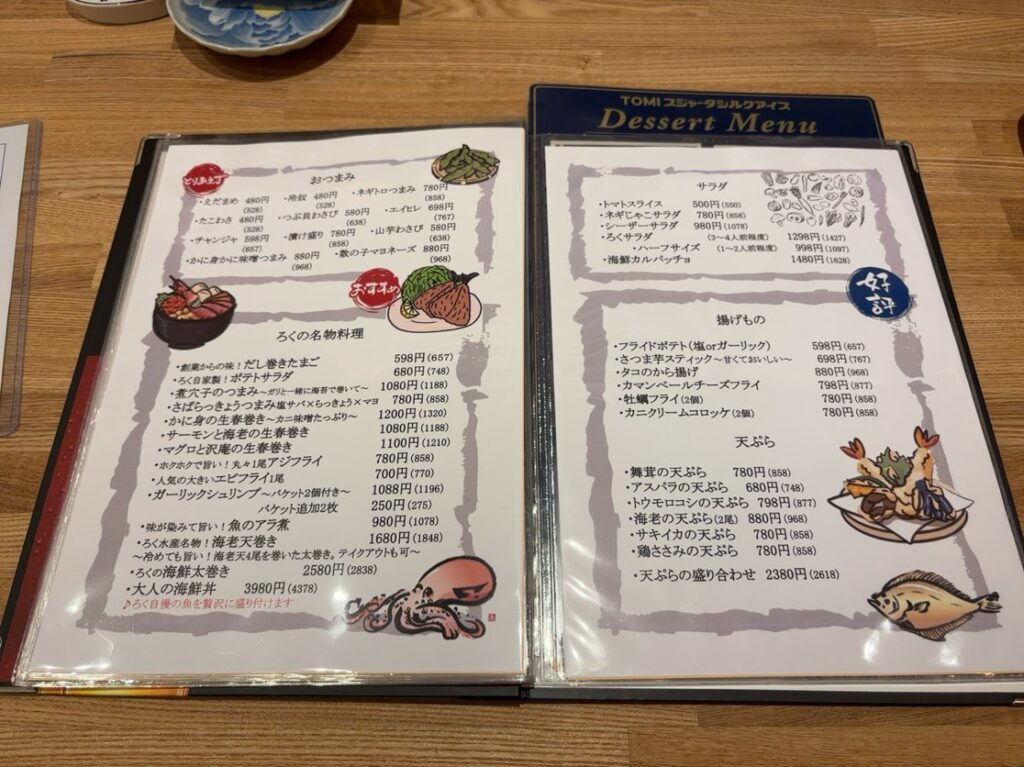 TOMI スジャータシルクアイス
Dessert Menu
とりあえず
おつまみ
・えだまめ 480円 (528)
・冷奴 480円 (528)
・ネギトロつまみ 780円 (858)
・たこわさ 480円 (528)
・つぶ貝わさび 580円 (638)
・エイヒレ 698円 (767)
・チャンジャ 598円 (657)
・漬け盛り 780円 (858)
・山芋わさび 580円 (638)
・かに身かに味噌つまみ 880円 (968)
・数の子マヨネーズ 880円 (968)
おすすめ
ろくの名物料理
・創業からの味！だし巻きたまご 598円(657)
・ろく自家製！ポテトサラダ 680円(748)
・煮穴子のつまみ～ガリと一緒に海苔で巻いて～ 1080円(1188)
・さばらっきょうつまみ塩サバ×らっきょう×マヨ 780円(858)
・かに身の生春巻き～カニ味噌たっぷり～ 1200円(1320)
・サーモンと海老の生春巻き 1080円(1188)
・マグロと沢庵の生春巻き 1100円(1210)
・ホクホクで旨い！丸々1尾アジフライ 780円(858)
・人気の大きいエビフライ1尾 700円(770)
・ガーリックシュリンプ～バケット2個付き～ 1088円(1196)
バケット追加2枚 250円(275)
・味が染みて旨い！魚のアラ煮 980円(1078)
・ろく水産名物！海老天巻き 1680円(1848)
～冷めても旨い！海老天4尾を巻いた太巻き。テイクアウトも可～
・ろくの海鮮太巻き 2580円(2838)
・大人の海鮮丼 3980円(4378)
♪ろく自慢の魚を贅沢に盛り付けます
サラダ
・トマトスライス 500円(550)
・ネギじゃこサラダ 780円(858)
・シーザーサラダ 980円(1078)
・ろくサラダ (3～4人前程度) 1298円(1427)
・ハーフサイズ (1～2人前程度) 998円(1097)
・海鮮カルパッチョ 1480円(1628)
好評
揚げもの
・フライドポテト(塩orガーリック) 598円(657)
・さつま芋スティック～甘くておいしい～ 698円(767)
・タコのから揚げ 880円(968)
・カマンベールチーズフライ 798円(877)
・牡蠣フライ(2個) 780円(858)
・カニクリームコロッケ(2個) 780円(858)
天ぷら
・舞茸の天ぷら 780円(858)
・アスパラの天ぷら 680円(748)
・トウモロコシの天ぷら 798円(877)
・海老の天ぷら(2尾) 880円(968)
・サキイカの天ぷら 780円(858)
・鶏ささみの天ぷら 780円(858)
・天ぷらの盛り合わせ 2380円(2618)